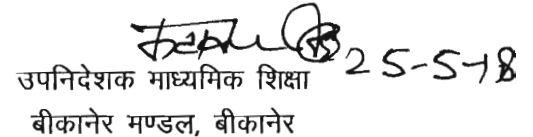 25-5-18
उपनिदेशक माध्यमिक शिक्षा
बीकानेर मण्डल, बीकानेर